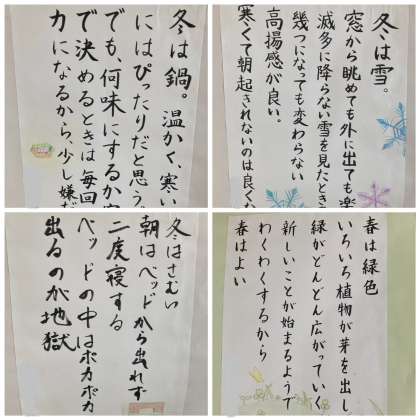 冬は鍋。温かく、寒い
にはぴったりだと思う
でも、何味にするか
で決めるときは毎回
力になるから、少し嫌
冬は雪。
窓から眺めても外に出ても楽
滅多に降らない雪を見たとき
幾つになっても変わらない
高揚感が良い。
寒くて朝起きれないのは良くな
冬はさむい
朝はベッドから出れず
二度寝する
ベッドの中はポカポカ
出るのが地獄
春は緑色
いろいろ植物が芽を出し
緑がどんどん広がっていく
新しいことが始まるようで
わくわくするから
春はよい